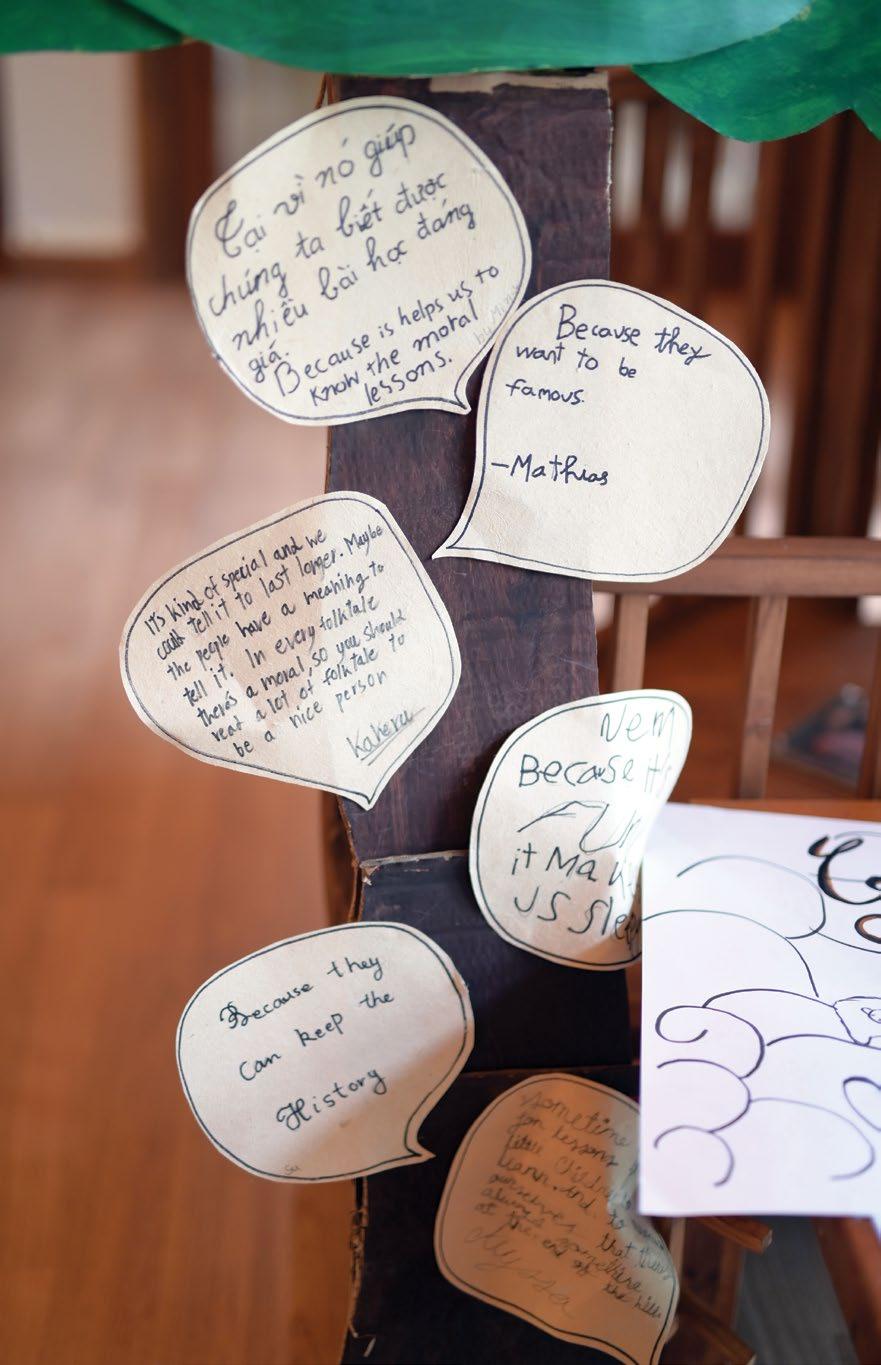 Tại vì nó giúp
chúng ta biết được
nhiều bài học đáng
giá.
Because is helps us to
know the moral
lessons.
Because they
want to be
famous.
-Mathias
It's kind of special and we
could tell it to last longer. Maybe
the people have a meaning to
tell it. In every folktale
there's a moral, so you should
read a lot of folktale to
be a nice person
Because it's
FUN
it Make
US Sleep
Because they
can keep the
History
Su
Sometime
for lessons
little children
learn. And to
ourselves that there
always something
at the end of the hill
Alyssa